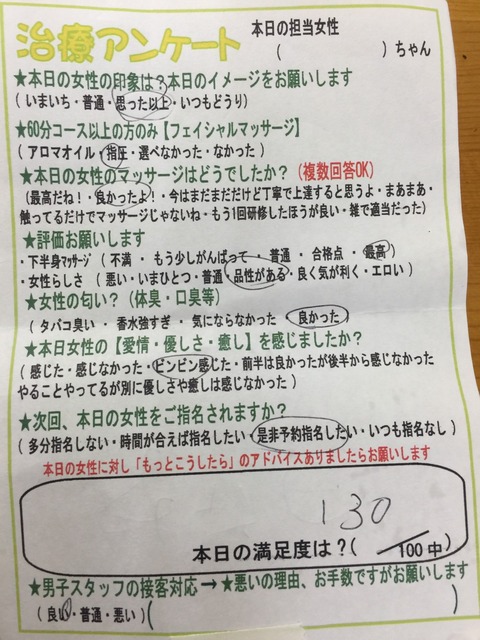 治療アンケート
本日の担当女性
(　　　　　　　)ちゃん
★本日の女性の印象は？本日のイメージをお願いします
( いまいち・普通・思った以上・いつもどうり)
★60分コース以上の方のみ【フェイシャルマッサージ】
( アロマオイル・指圧・選べなかった・なかった )
★本日の女性のマッサージはどうでしたか？(複数回答OK)
(最高だね！・良かったよ！・今はまだまだだけど丁寧で上達すると思うよ・まあまあ・
触ってるだけでマッサージじゃないね・もう1回研修したほうが良い・雑で適当だった)
★評価お願いします
・下半身ﾏｯｻｰｼﾞ ( 不満 ・ もう少しがんばって ・ 普通 ・ 合格点 ・ 最高 )
・女性らしさ ( 悪い・いまひとつ・普通・品性がある・良く気が利く・エロい )
★女性の匂い？ (体臭・口臭等)
( タバコ臭い ・ 香水強すぎ ・ 気にならなかった ・ 良かった )
★本日女性の【愛情・優しさ・癒し】を感じましたか？
( 感じた・感じなかった・ビンビン感じた・前半は良かったが後半から感じなかった
やることやってるが別に優しさや癒しは感じなかった )
★次回、本日の女性をご指名されますか？
( 多分指名しない・時間が合えば指名したい・是非予約指名したい・いつも指名なし )
本日の女性に対し「もっとこうしたら」のアドバイスありましたらお願いします
130
本日の満足度は？( ／100中)
★男子スタッフの接客対応→★悪いの理由、お手数ですがお願いします
( 良い・普通・悪い ) (　　　　　　　)